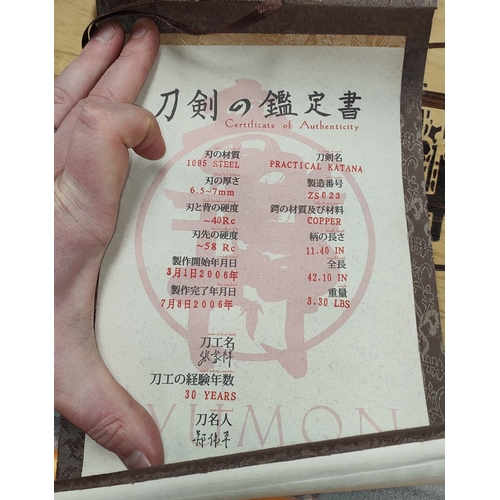 刀剣の鑑定書
Certificate of Authenticity
刀剣名
PRACTICAL KATANA
製造番号
ZS023
鍔の材質及び材料
COPPER
柄の長さ
11.40 IN
全長
42.10 IN
重量
3.30 LBS
刃の材質
1095 STEEL
刃の厚さ
6.5~7mm
刃と背の硬度
~40Rc
刃先の硬度
~58 Rc
製作開始年月日
3月1日2006年
製作完了年月日
7月8日2006年
刀工名
刀工の経験年数
30 YEARS
刀名人